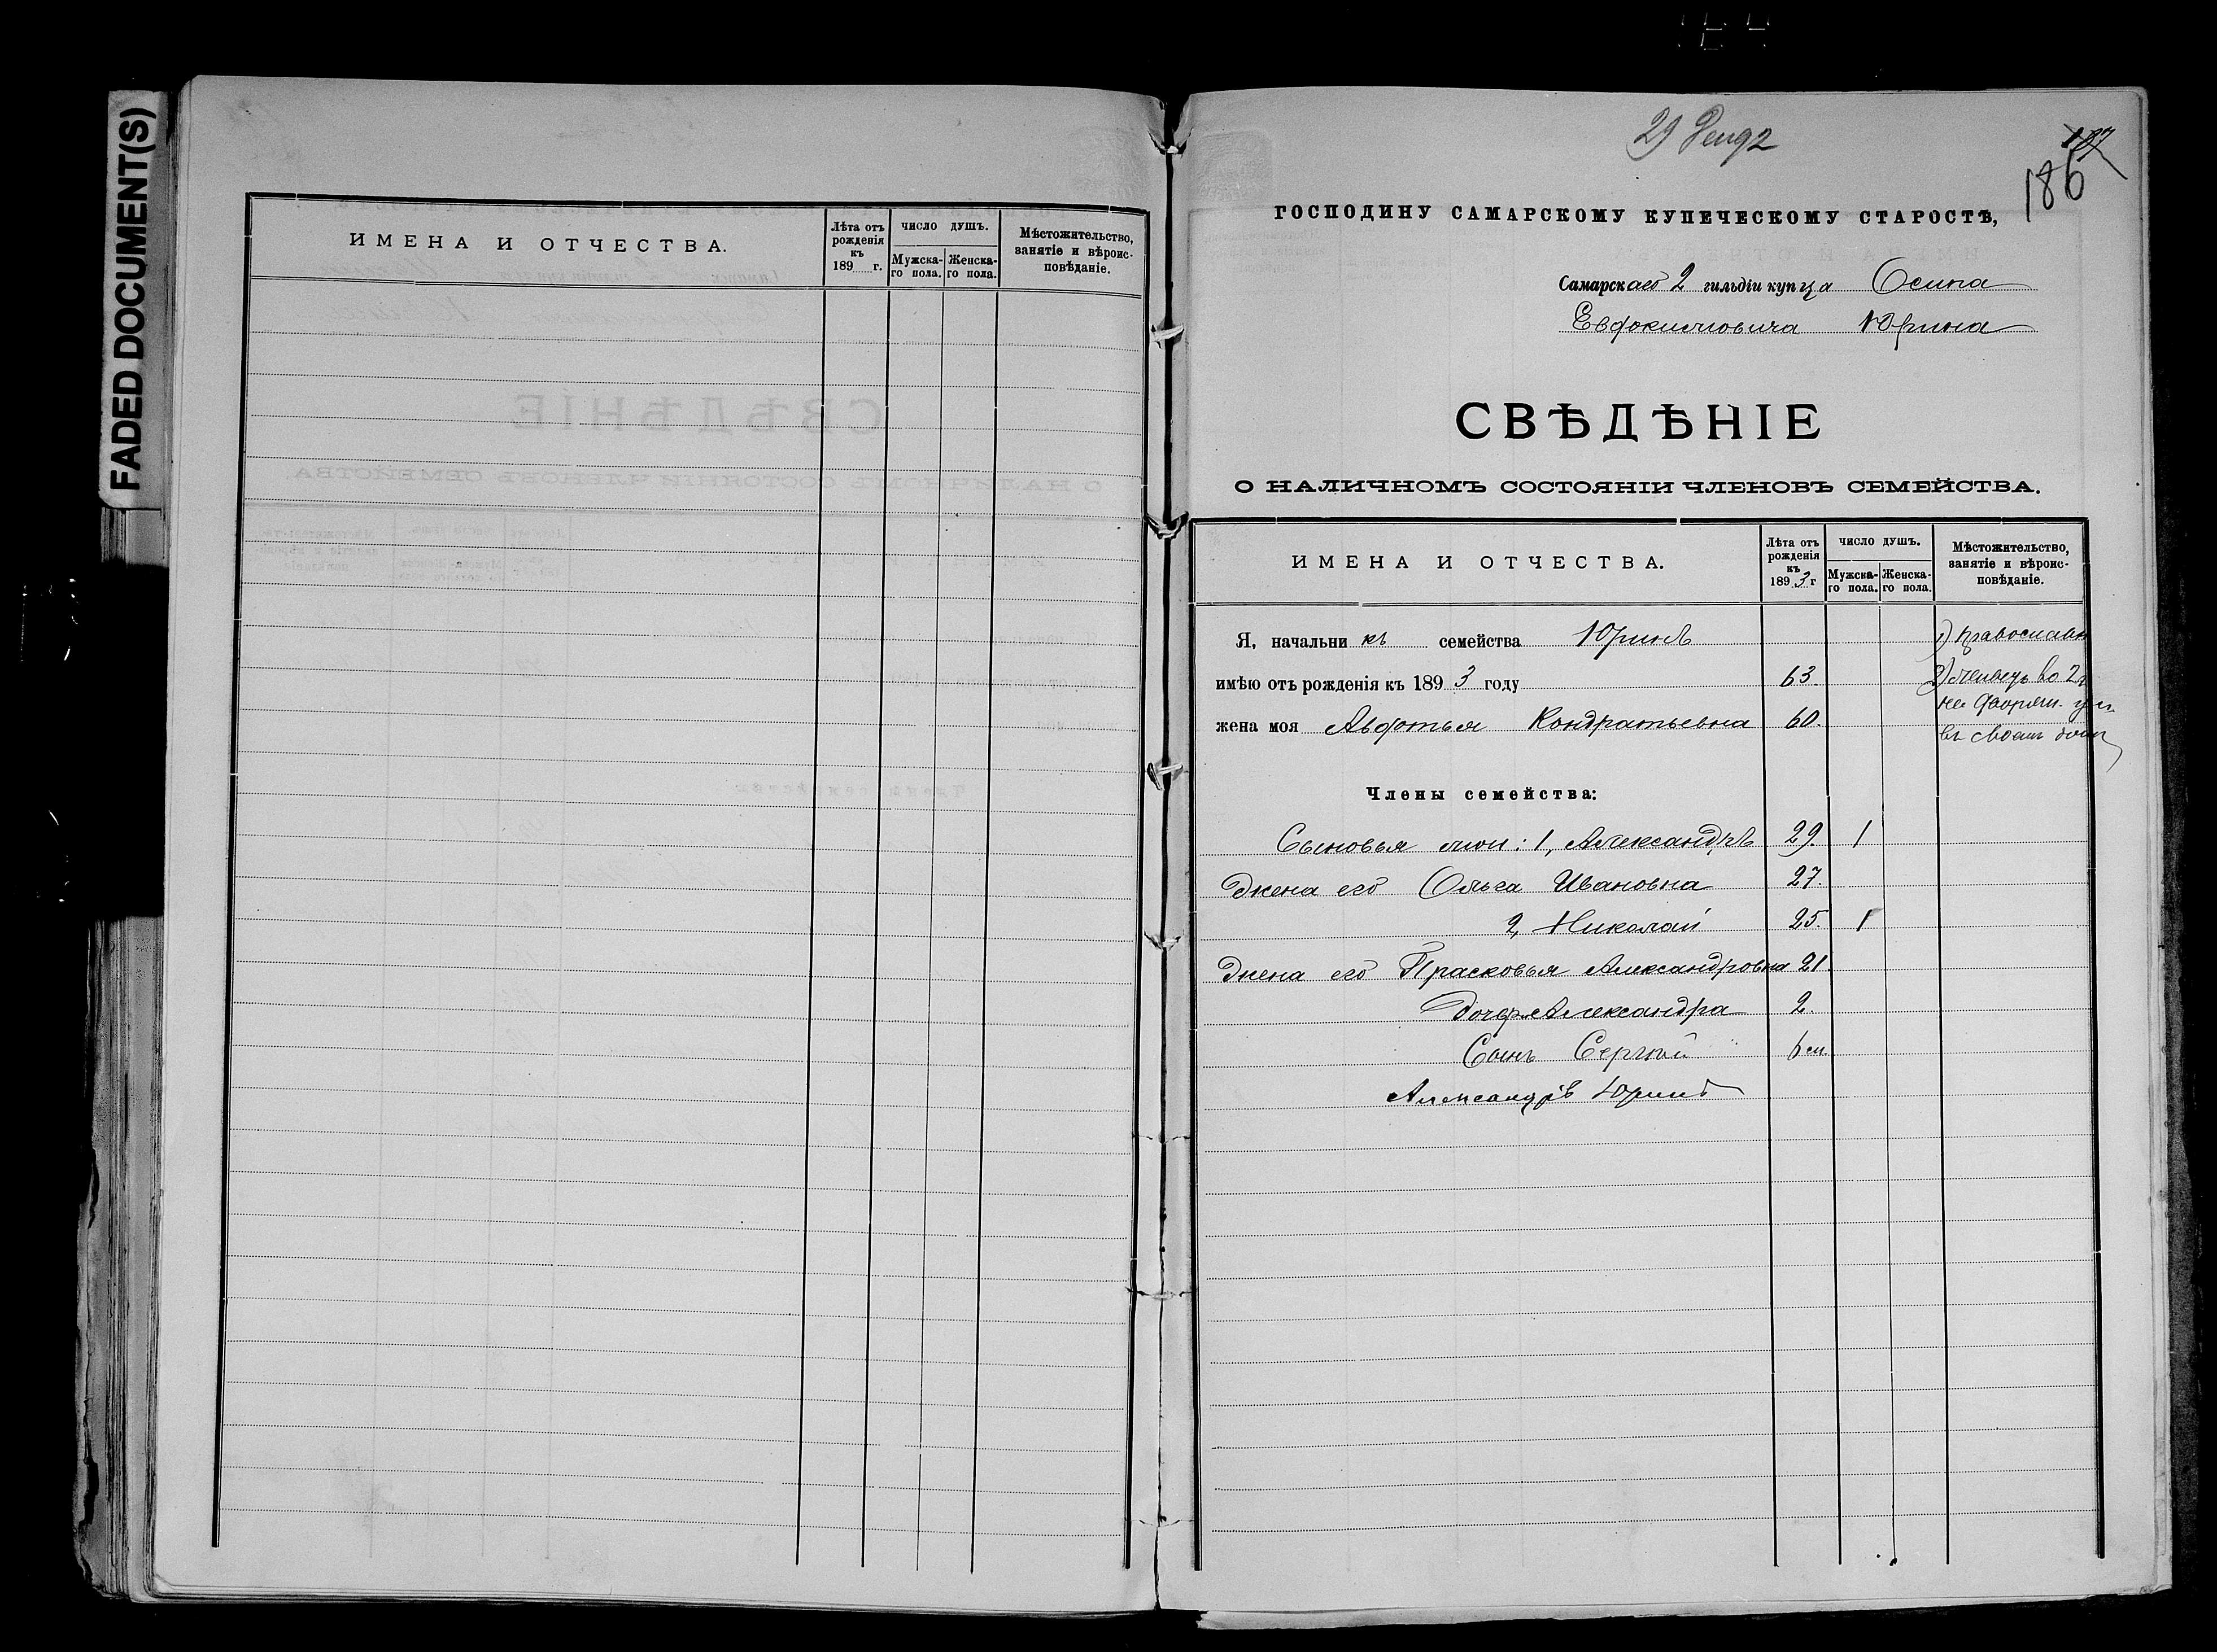 FADED DOCUMENT(S)
ИМЕНА И ОТЧЕСТВА.
Лѣта отъ рожденія къ 189 г.
ЧИСЛО ДУШЪ.
Мужска-го пола.
Женска-го пола.
Мѣстожительство, занятіе и вѣроис-повѣданіе.
29
187
186
ГОСПОДИНУ САМАРСКОМУ КУПЕЧЕСКОМУ СТАРОСТѢ,
Самарскаго 2 гильдіи купца Осипа
Евдокимовича Юрина
СВѢДѢНІЕ
О НАЛИЧНОМЪ СОСТОЯНІИ ЧЛЕНОВЪ СЕМЕЙСТВА.
ИМЕНА И ОТЧЕСТВА.
Лѣта отъ рожденія къ 1893 г
ЧИСЛО ДУШЪ.
Мужска-го пола.
Женска-го пола.
Мѣстожительство, занятіе и вѣроис-повѣданіе.
Я, начальникъ семейства Юринъ 1) православн
имѣю отъ рожденія къ 1893 году 63. 2) во 2
на Дворян. ул.
жена моя Авдотья Кондратьевна 60.
въ своемъ домѣ
Члены семейства:
Сыновья мои: 1, Александръ 29. 1
Жена его Ольга Ивановна 27.
2, Николай 25. 1
Жена его Прасковья Александровна 21.
Дочерь Александра 2.
Сынъ Сергѣй 6 м.
Александръ Юринъ